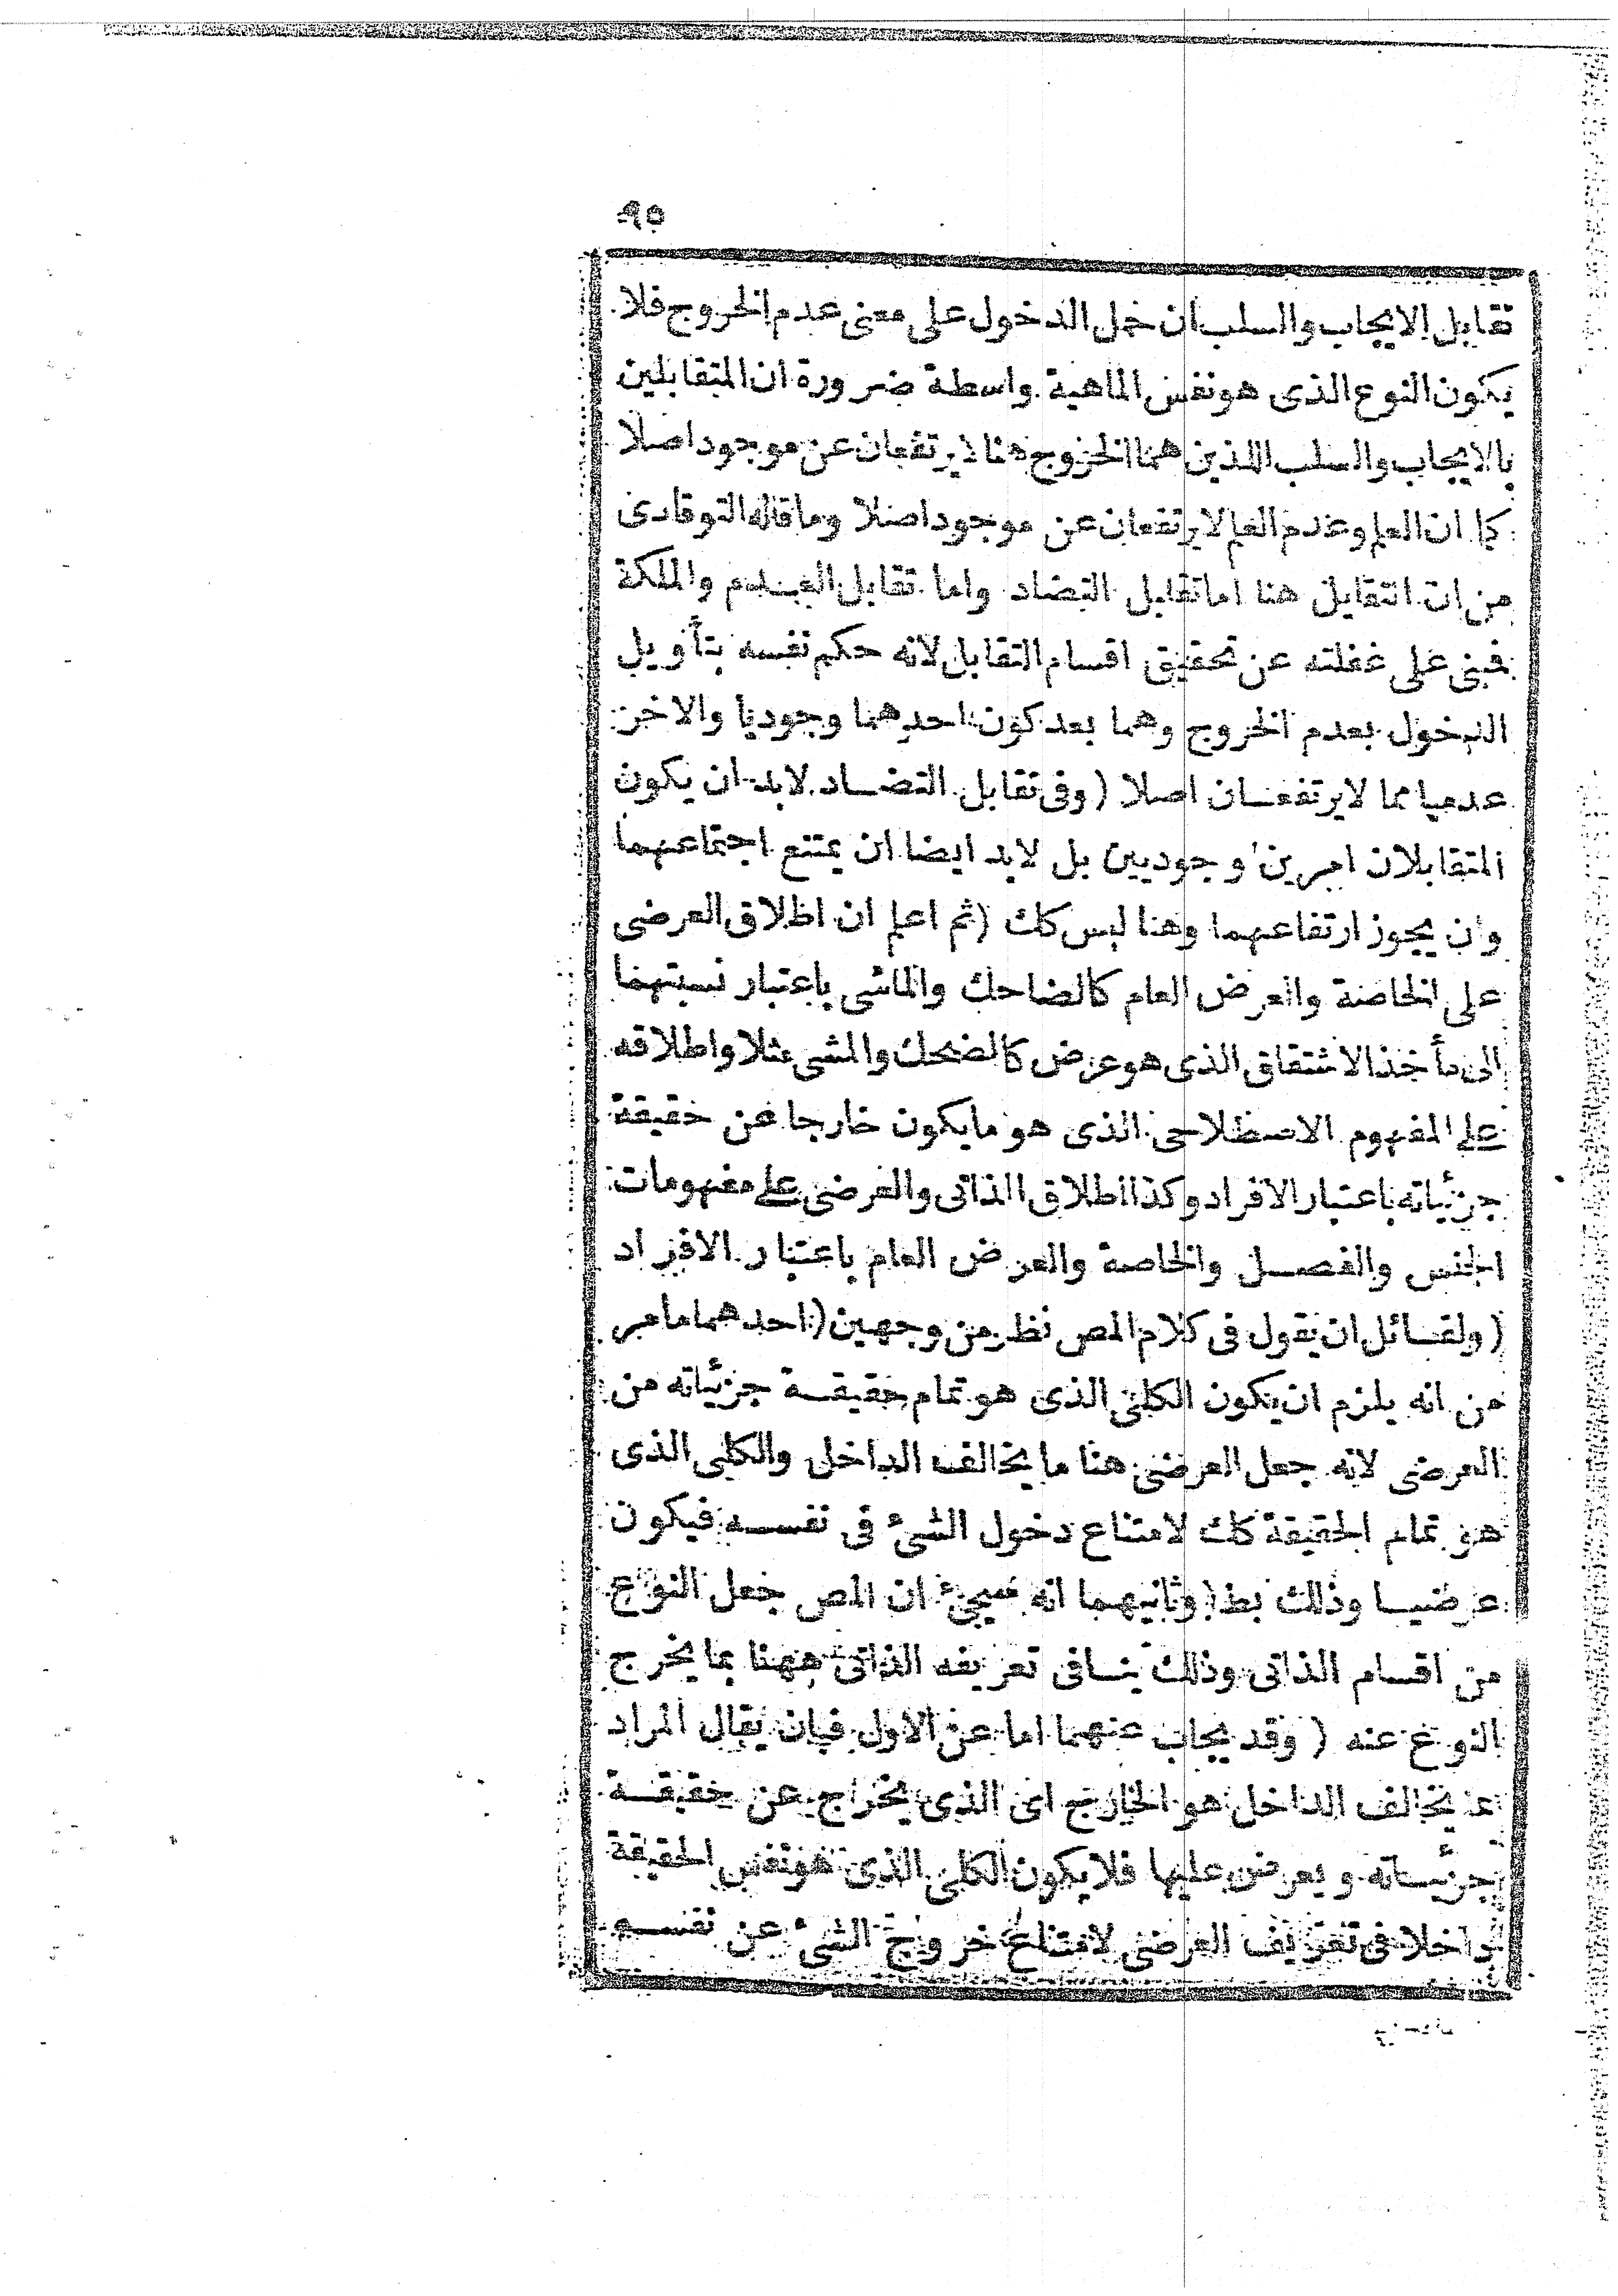 ٩٥
تقابل الايجاب والسلب ان حمل الدخول على معنى عدم الخروج فلا
يكون النوع الذى هو نفس الماهية واسطة ضرورة ان المتقابلين
بالايجاب والسلب اللذين هما الخروج هنا لايرتفعان عن موجود اصلا
كما ان العلم وعدم العلم لايرتفعان عن موجود اصلا وما قاله التوقادى
من ان التقابل هنا اما تقابل التضاد واما تقابل العدم والملكة
فبنى على غفلته عن تحقيق اقسام التقابل لانه حكم نفسه بتأويل
الدخول بعدم الخروج وهما بعد كون احدهما وجوديا والاخر
عدميا مما لايرتفعان اصلا ( وفى تقابل التضاد لابد ان يكون
المتقابلان امرين وجوديين بل لابد ايضا ان يمتنع اجتماعهما
وان يجوز ارتفاعهما وهنا ليس كك ( ثم اعلم ان اطلاق العرضى
على الخاصة والعرض العام كالضاحك والماشى باعتبار نسبتهما
الى مأخذ الاشتقاق الذى هو عرض كالضحك والمشى مثلا واطلاقه
على المفهوم الاصطلاحى الذى هو مايكون خارجا عن حقيقة
جزئياته باعتبار الافراد وكذا اطلاق الذاتى والعرضى على مفهومات
الجنس والفصل والخاصة والعرض العام باعتبار الافراد
( ولقائل ان يقول فى كلام المص نظر من وجهين ( احدهما مامر
من انه يلزم ان يكون الكلى الذى هو تمام حقيقة جزئياته من
العرضى لانه جعل العرضى هنا ما يخالف الداخل والكلى الذى
هو تمام الحقيقة كك لامتناع دخول الشئ فى نفسه فيكون
عرضيا وذلك بط ( وثانيهما انه سيجئ ان المص جعل النوع
من اقسام الذاتى وذلك ينافى تعريفه الذاتى ههنا بما يخرج
النوع عنه ( وقد يجاب عنهما اما عن الاول فبان يقال المراد
بما يخالف الداخل هو الخارج اى الذى يخرج عن حقيقة
جزئياته ويعرض عليها فلا يكون الكلى الذى هو نفس الحقيقة
داخلا فى تعريف العرضى لامتناع خروج الشئ عن نفسه